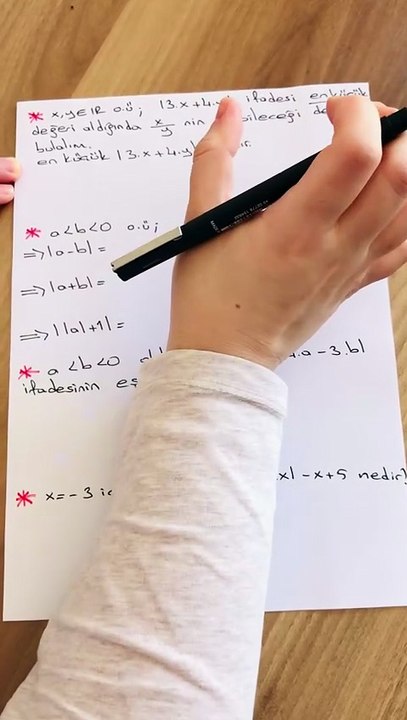 * x,y∈IR o.ü; |3.x+4.y| ifadesi en küçük
değeri aldığında x/y nin
bulalım.
en küçük |3.x+4.y|
* a<b<0 o.ü;
⇒|a-b|=
⇒|a+b|=
⇒||a|+1|=
* a<b<0 .a-3.b|
ifadesinin
* x=-3 x|-x+5 nedir?